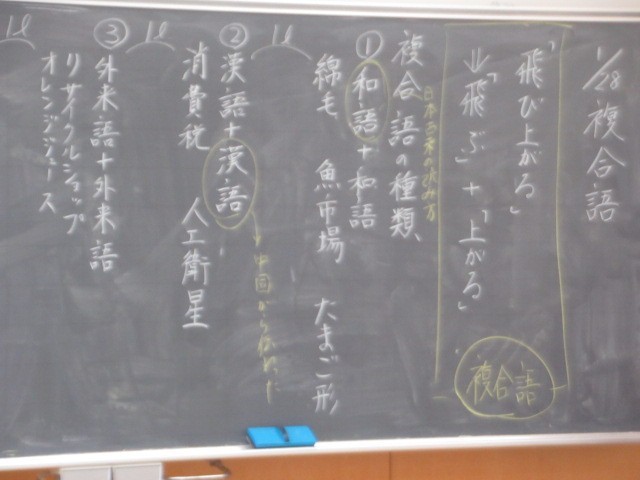 1/28 複合語
「飛び上がる」
⇒「飛ぶ」+「上がる」
複合語
複合語の種類
日本古来の読み方
①和語+和語
綿毛 魚市場 たまご形
②漢語+漢語
中国から伝わった
消費税 人工衛星
③外来語+外来語
リサイクルショップ
オレンジジュース